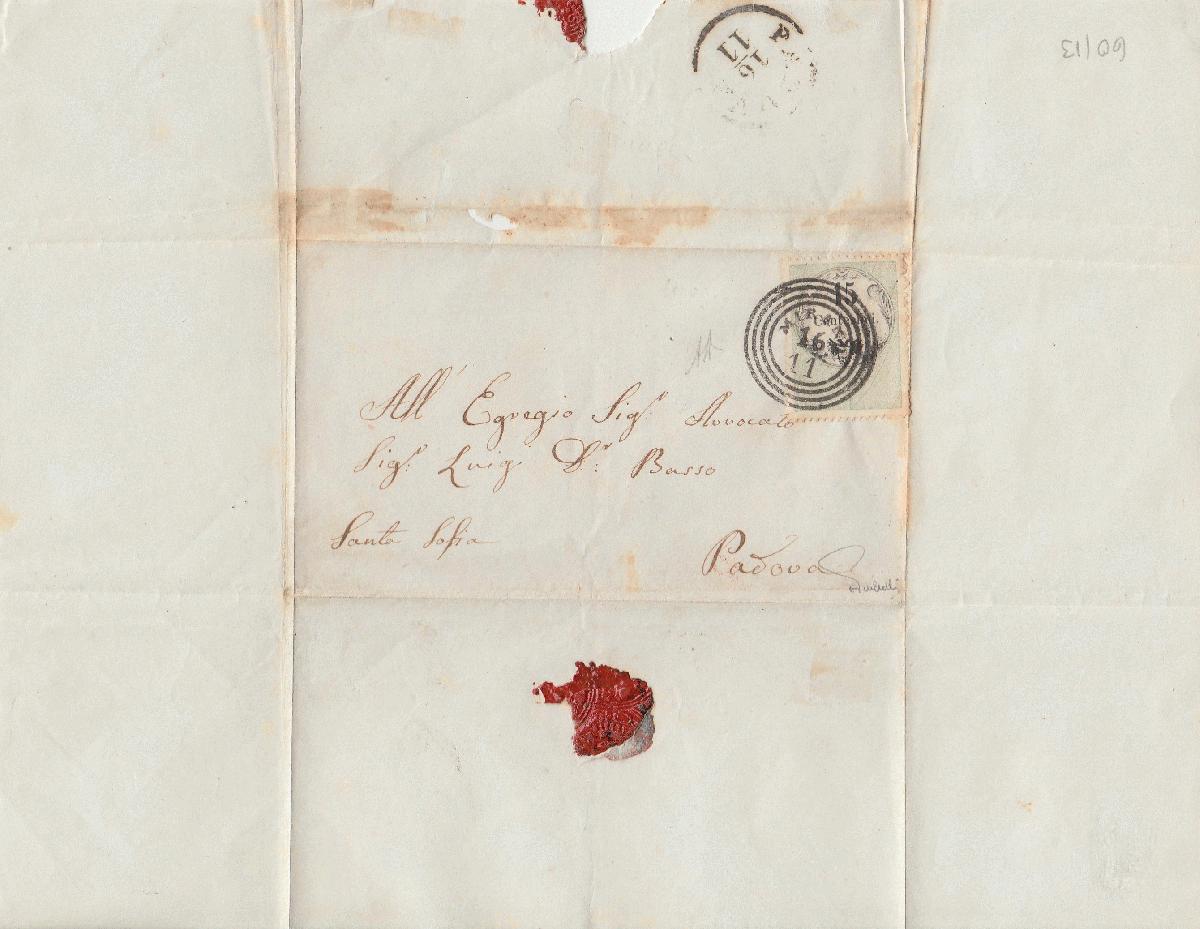 60/13
16
11
15
Cent
MIRANO
16
11
All' Egregio Sigr. Avvocato
Sigr. Luigi Dr. Basso
Santa Sofia
Padova